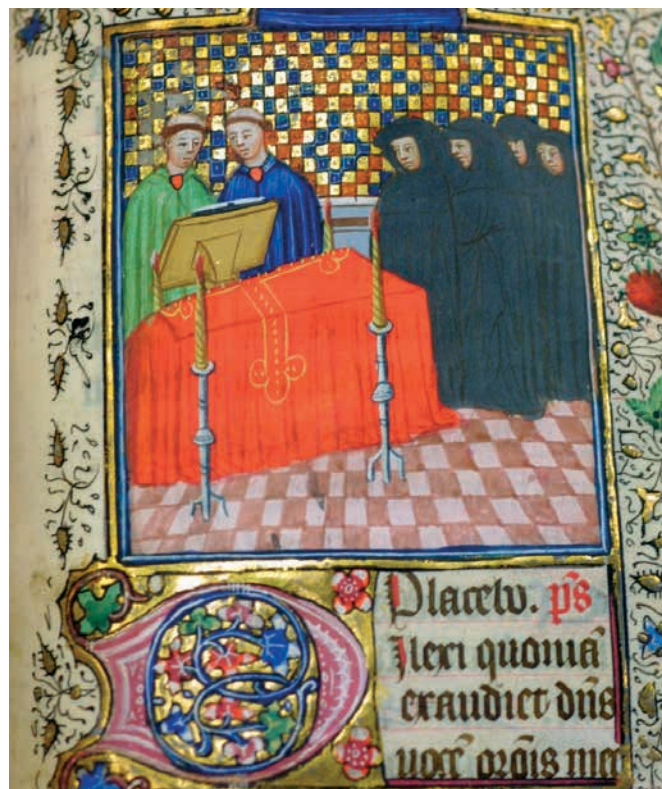 Placebo. p̄s
Dilexi quoniā
exaudiet dn̄s
uocē orōis mee